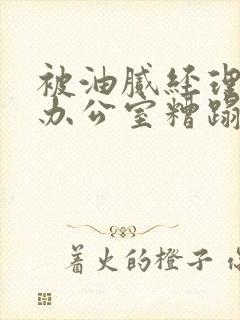 被油腻经理
办公室糟蹋
着火的橙子